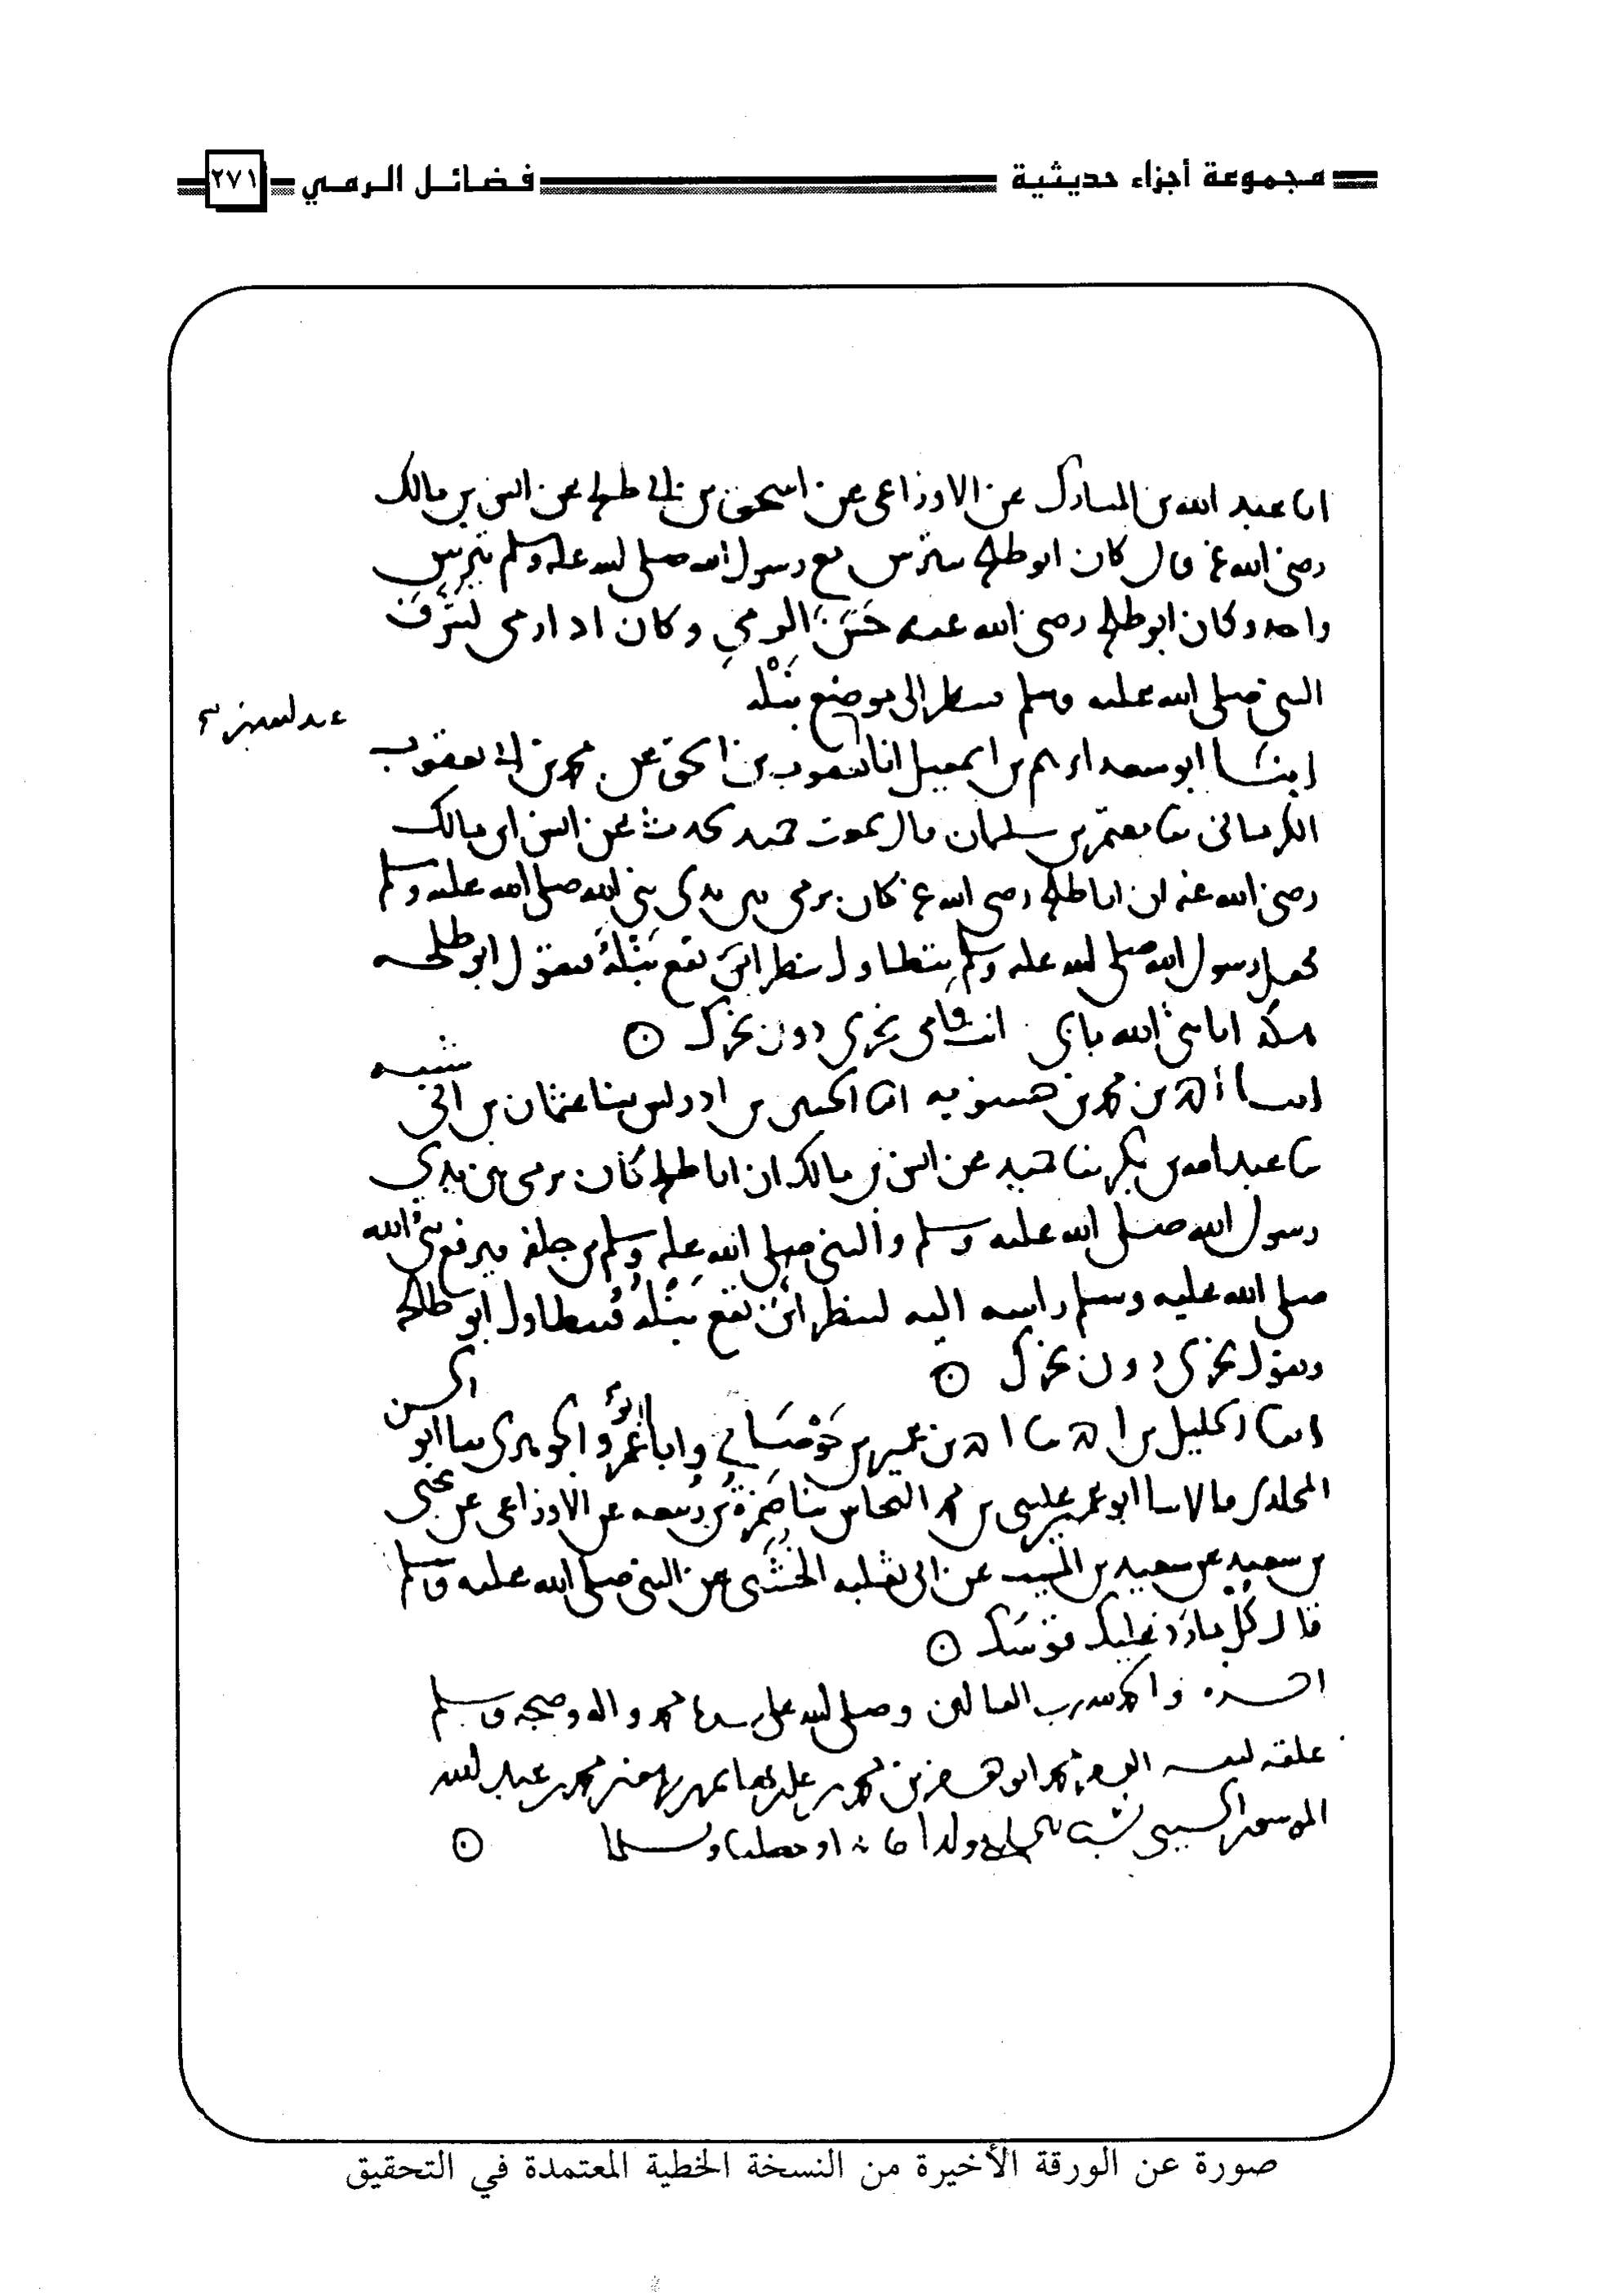 مجموعة أجزاء حديثية فضائل الرمي ٢٧١
انا عبد الله بن المبارك عن الاوزاعي عن اسحق بن ابي طلحة عن انس بن مالك
رضي الله عنه قال كان ابو طلحة يترس مع رسول الله صلى الله عليه وسلم بترس
واحد وكان ابو طلحة رضي الله عنه حَسَنَ الرمي وكان اذا رمى تشرف
النبي صلى الله عليه وسلم فينظر الى موضع نَبْله
ابو سعد ابرهيم بن اسمعيل انا يعقوب بن اسحق عن محمد بن ابي يعقوب
الكرماني ثنا معتمر بن سليمان قال سمعت حميد يحدث عن انس ابن مالك
رضي الله عنه ان ابا طلحة رضي الله عنه كان يرمي بين يدي نبي الله صلى الله عليه وسلم
فجعل رسول الله صلى الله عليه وسلم يتطاول ينظر اين تقع نَبْلُهُ فيقول ابو طلحه
هكذا يا نبي الله بابي انت وامي نحري دون نحرك
احمد بن محمد بن حسنويه انا الحسين بن ادريس ثنا عثمان بن ابي شيبه
ثنا عبد الله بن بكر ثنا حميد عن انس بن مالك ان ابا طلحة كان يرمي بين يدي
رسول الله صلى الله عليه وسلم والنبي صلى الله عليه وسلم من خلفه فيرفع نبي الله
صلى الله عليه وسلم راسه اليه لينظر اين تقع نَبْلُهُ فيتطاول ابو طلحة
ويقول نحري دون نحرك
الخليل بن احمد ثنا احمد بن عمير بن جَوْصَا ثنا ابو الحسن
المخلدي قالا ثنا ابو عمير عيسى بن محمد النحاس ثنا ضَمْرَةُ بن ربيعه عن الاوزاعي عن يحيى
بن سعيد عن سعيد بن المسيب عن ابي ثعلبه الخُشَني عن النبي صلى الله عليه وسلم
قال كُل ما رد عليك قوسك
اخره والحمد لله رب العالمين وصلى الله على سيدنا محمد واله وصحبه وسلم
علقه لنفسه محمد بن محمد بن عبد الله
صورة عن الورقة الأخيرة من النسخة الخطية المعتمدة في التحقيق